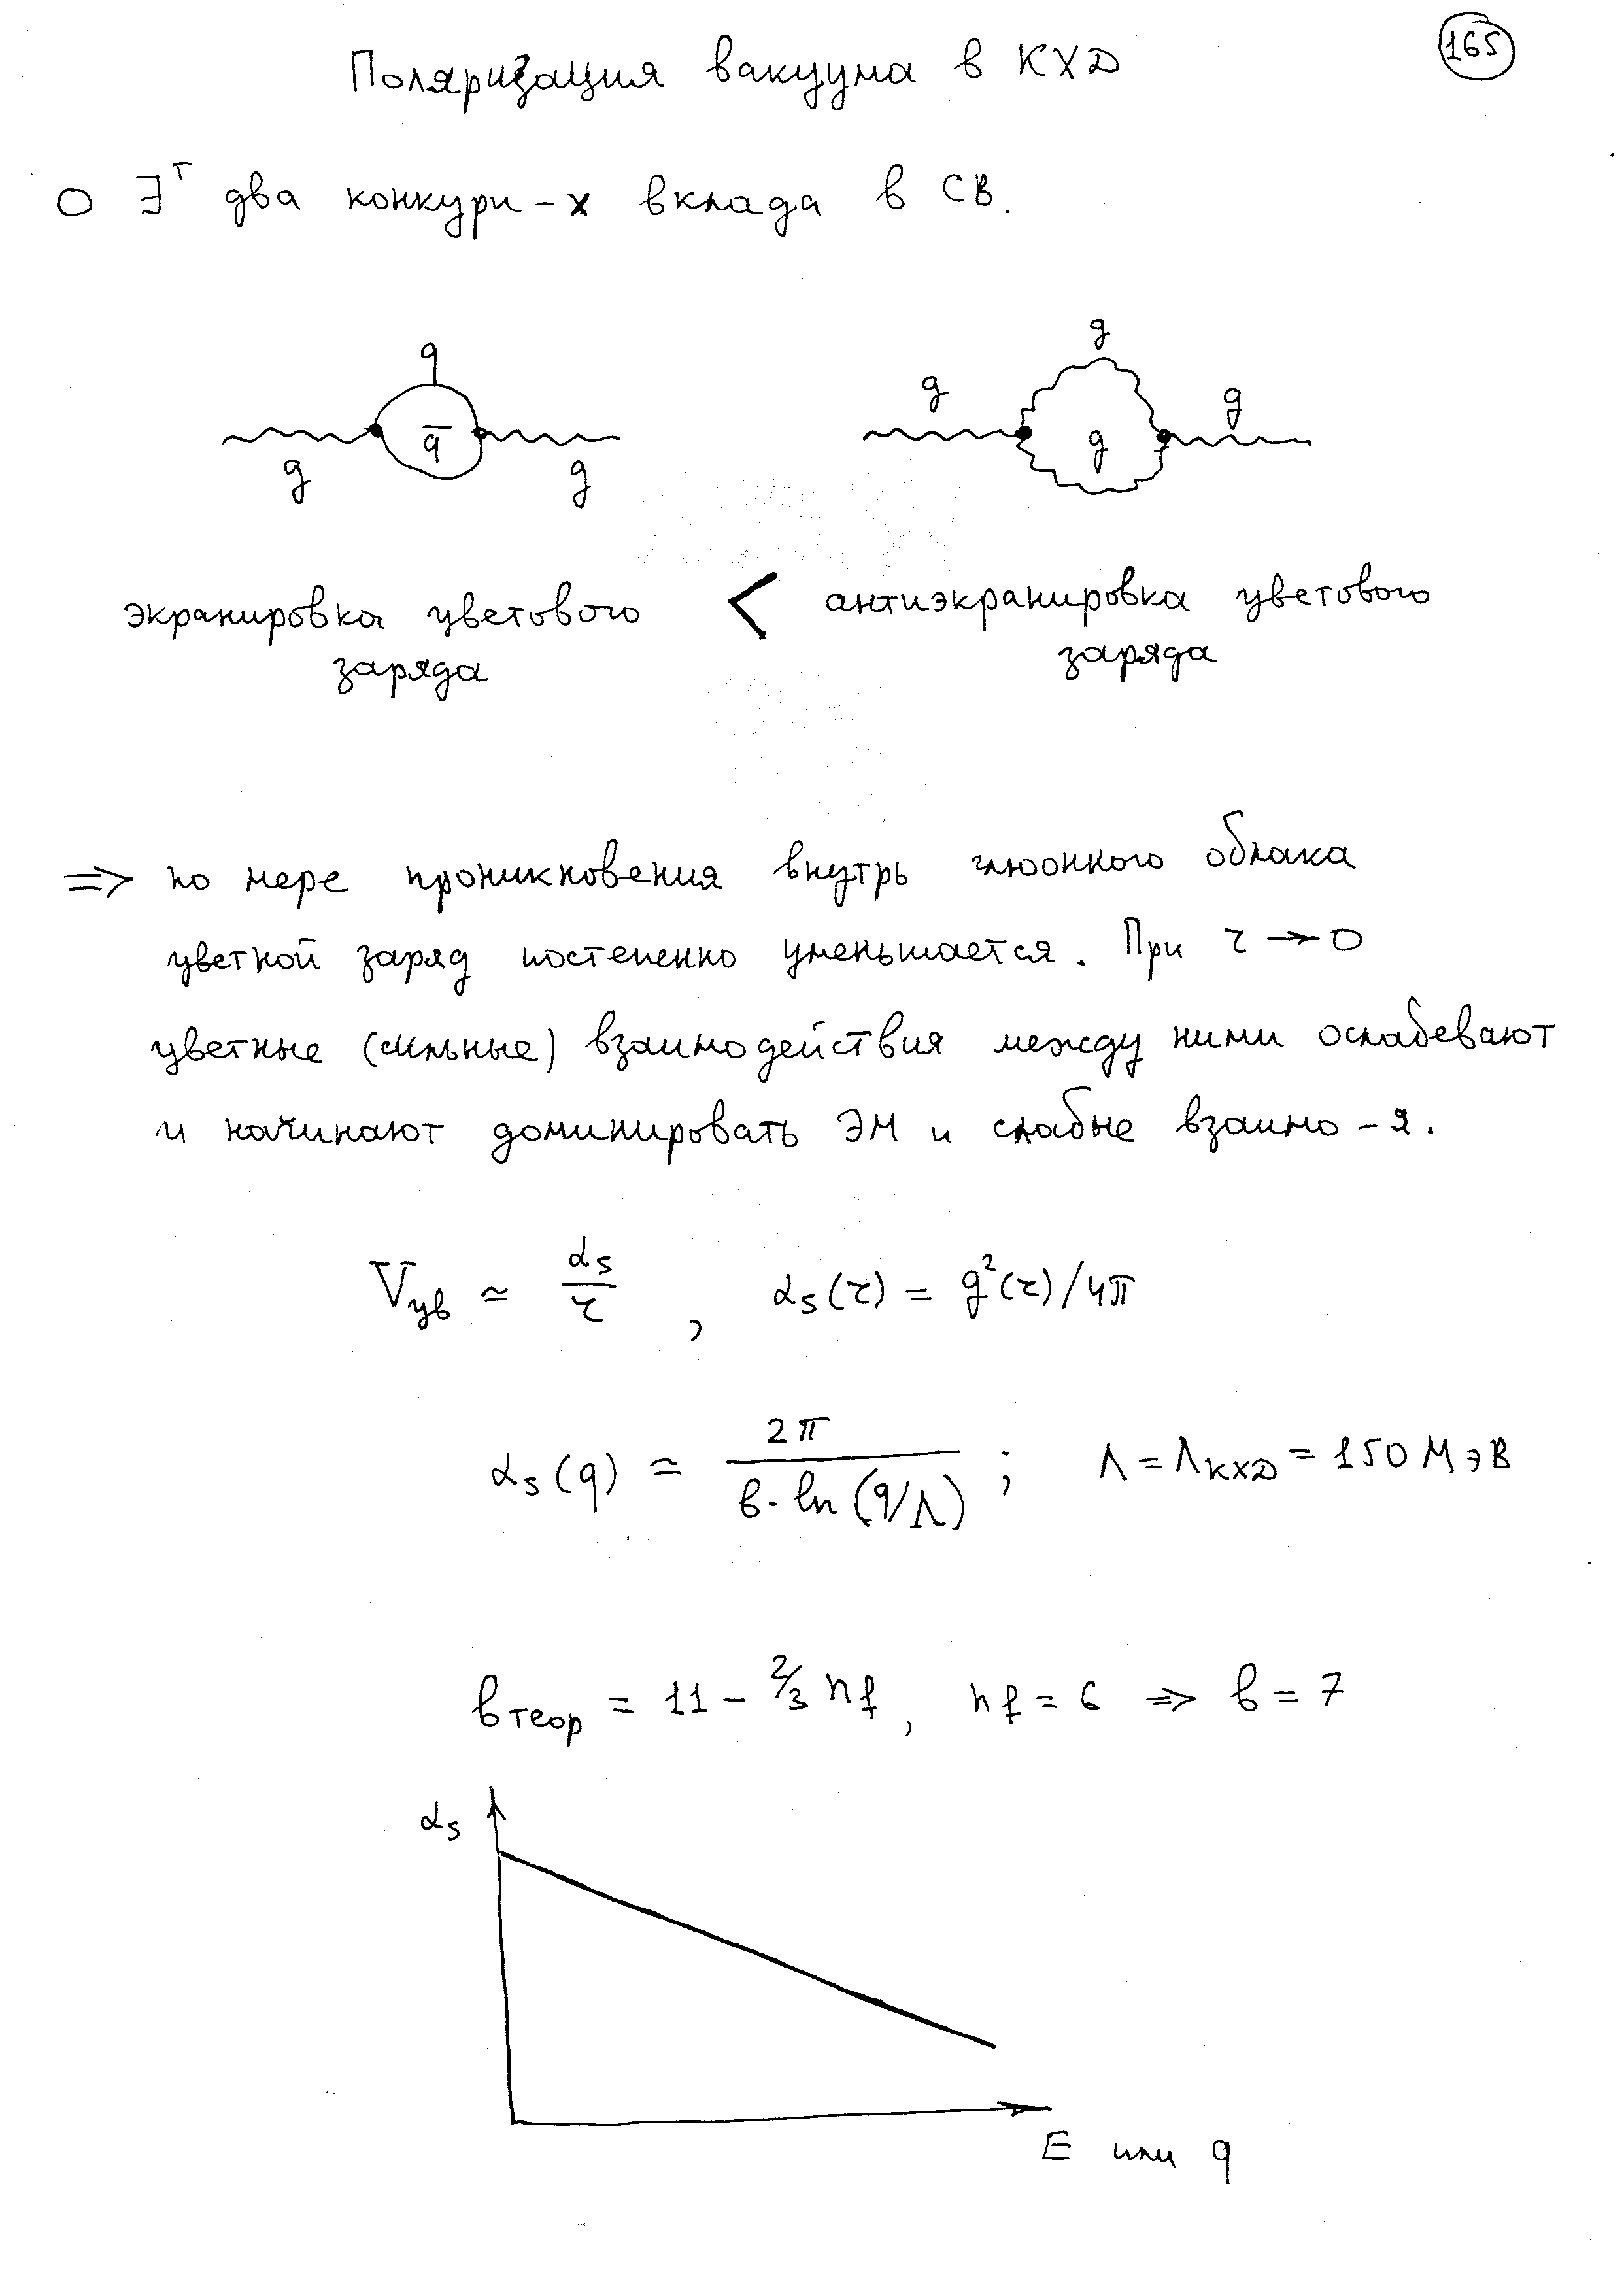 165
Поляризация вакуума в КХД
○ ∃ᵀ два конкури-х вклада в СВ.
q g
g q̄ g g g g
экранировка цветового < антиэкранировка цветового
заряда заряда
⇒ по мере проникновения внутрь глюонного облака
цветной заряд постепенно уменьшается. При r → 0
цветные (сильные) взаимодействия между ними ослабевают
и начинают доминировать ЭМ и слабые взаимо-я.
V_цв ≃ α_s/r , α_s(r) = g²(r)/4π
α_s(q) ≃ 2π/(в·ln(q/Λ)) ; Λ = Λ_КХД = 150 МэВ
в_теор = 11 - 2/3 n_f , n_f = 6 ⇒ в = 7
α_s
E или q